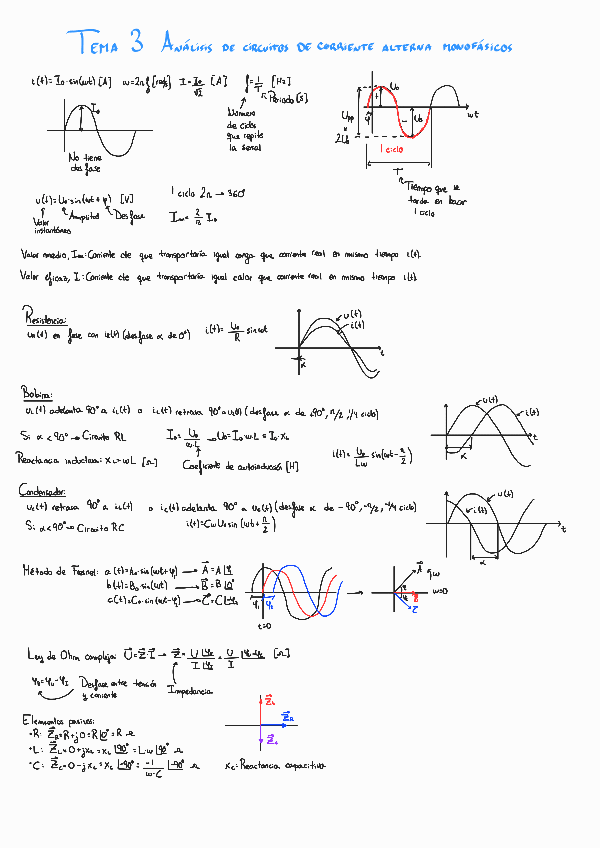 TEMA 3 ANÁLISIS DE CIRCUITOS DE CORRIENTE ALTERNA MONOFÁSICOS
i(t)=I₀·sin(ωt) [A] ω=2πf [rad/s] I=I₀/√2 [A] f=1/T [Hz]
Período [s]
Número de ciclos que repite la señal
I₀
No tiene desfase
U₀
Upp
2U₀
φ
ωt
1 ciclo
T
Tiempo que se tarda en hacer 1 ciclo
u(t)=U₀·sin(ωt+φ) [V]
Valor instantáneo
Amplitud
Desfase
1 ciclo 2π → 360°
Im=2/π I₀
Valor medio, Im: Corriente cte que transportaría igual carga que corriente real en mismo tiempo i(t).
Valor eficaz, I: Corriente cte que transportaría igual calor que corriente real en mismo tiempo i(t).
Resistencia:
uR(t) en fase con iR(t) (desfase α de 0°) i(t)=U₀/R sinωt
u(t)
i(t)
t
α
Bobina:
uL(t) adelanta 90° a iL(t) o iL(t) retrasa 90° a uL(t) (desfase α de 90°, π/2, 1/4 ciclo)
Si α<90° → Circuito RL I₀=U₀/ω·L → U₀=I₀·ω·L=I₀·XL
Reactancia inductiva: XL=ωL [Ω]
Coeficiente de autoinducción [H]
i(t)=U₀/Lω sin(ωt-π/2)
u(t)
i(t)
t
α
Condensador:
uc(t) retrasa 90° a ic(t) o ic(t) adelanta 90° a uc(t) (desfase α de -90°, -π/2, -1/4 ciclo)
Si α<90° → Circuito RC i(t)=CωU₀ sin(ωt+π/2)
u(t)
i(t)
t
α
Método de Fresnel: a(t)=A₀·sin(ωt+φ₁) → A=A∠φ₁
b(t)=B₀·sin(ωt) → B=B∠0°
c(t)=C₀·sin(ωt-φ₂) → C=C∠-φ₂
φ₁ φ₂
t=0
A ω
ω=0
B
C
Ley de Ohm compleja: U=Z·I → Z=U∠φu/I∠φI=U/I ∠φu-φI [Ω]
φz=φu-φI Desfase entre tensión y corriente
Impedancia
Elementos pasivos:
-R: ZR=R+j0=R∠0°=R Ω
-L: ZL=0+jXL=XL∠90°=L·ω∠90° Ω
-C: Zc=0-jXc=Xc∠-90°=-1/ω·C ∠-90° Ω
Xc: Reactancia capacitiva
ZL
ZR
Zc